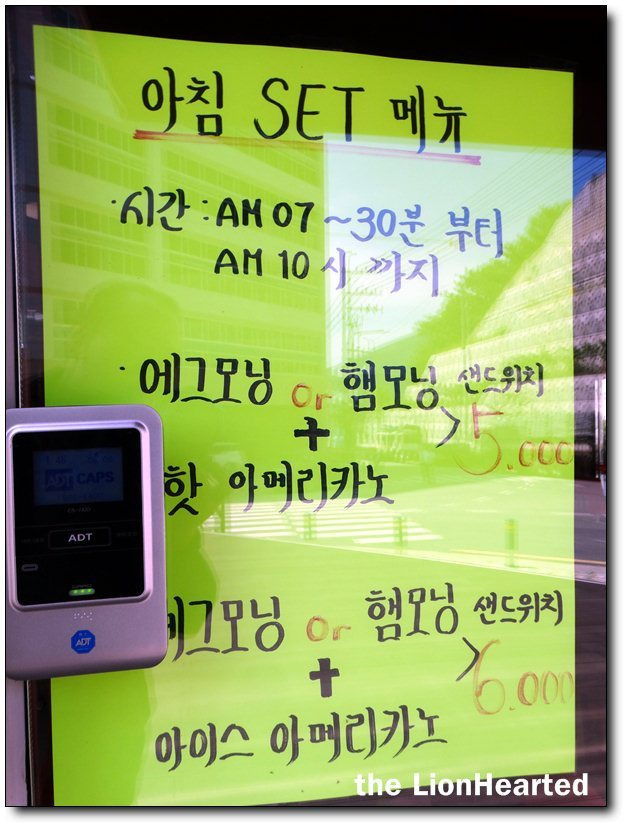 아침 SET 메뉴
·시간 : AM 07 ~30분 부터
AM 10시 까지
·에그모닝 or 햄모닝 샌드위치
+ > 5.000
핫 아메리카노
에그모닝 or 햄모닝 샌드위치
+ > 6.000
아이스 아메리카노
ADT CAPS
ADT
ADT
the LionHearted